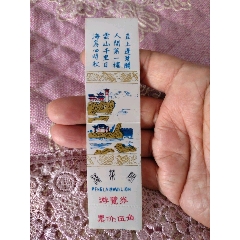 直上蓬萊閣
人間第一樓
雲山千里目
海島四時秋
蓬萊閣
游览券
票价伍角